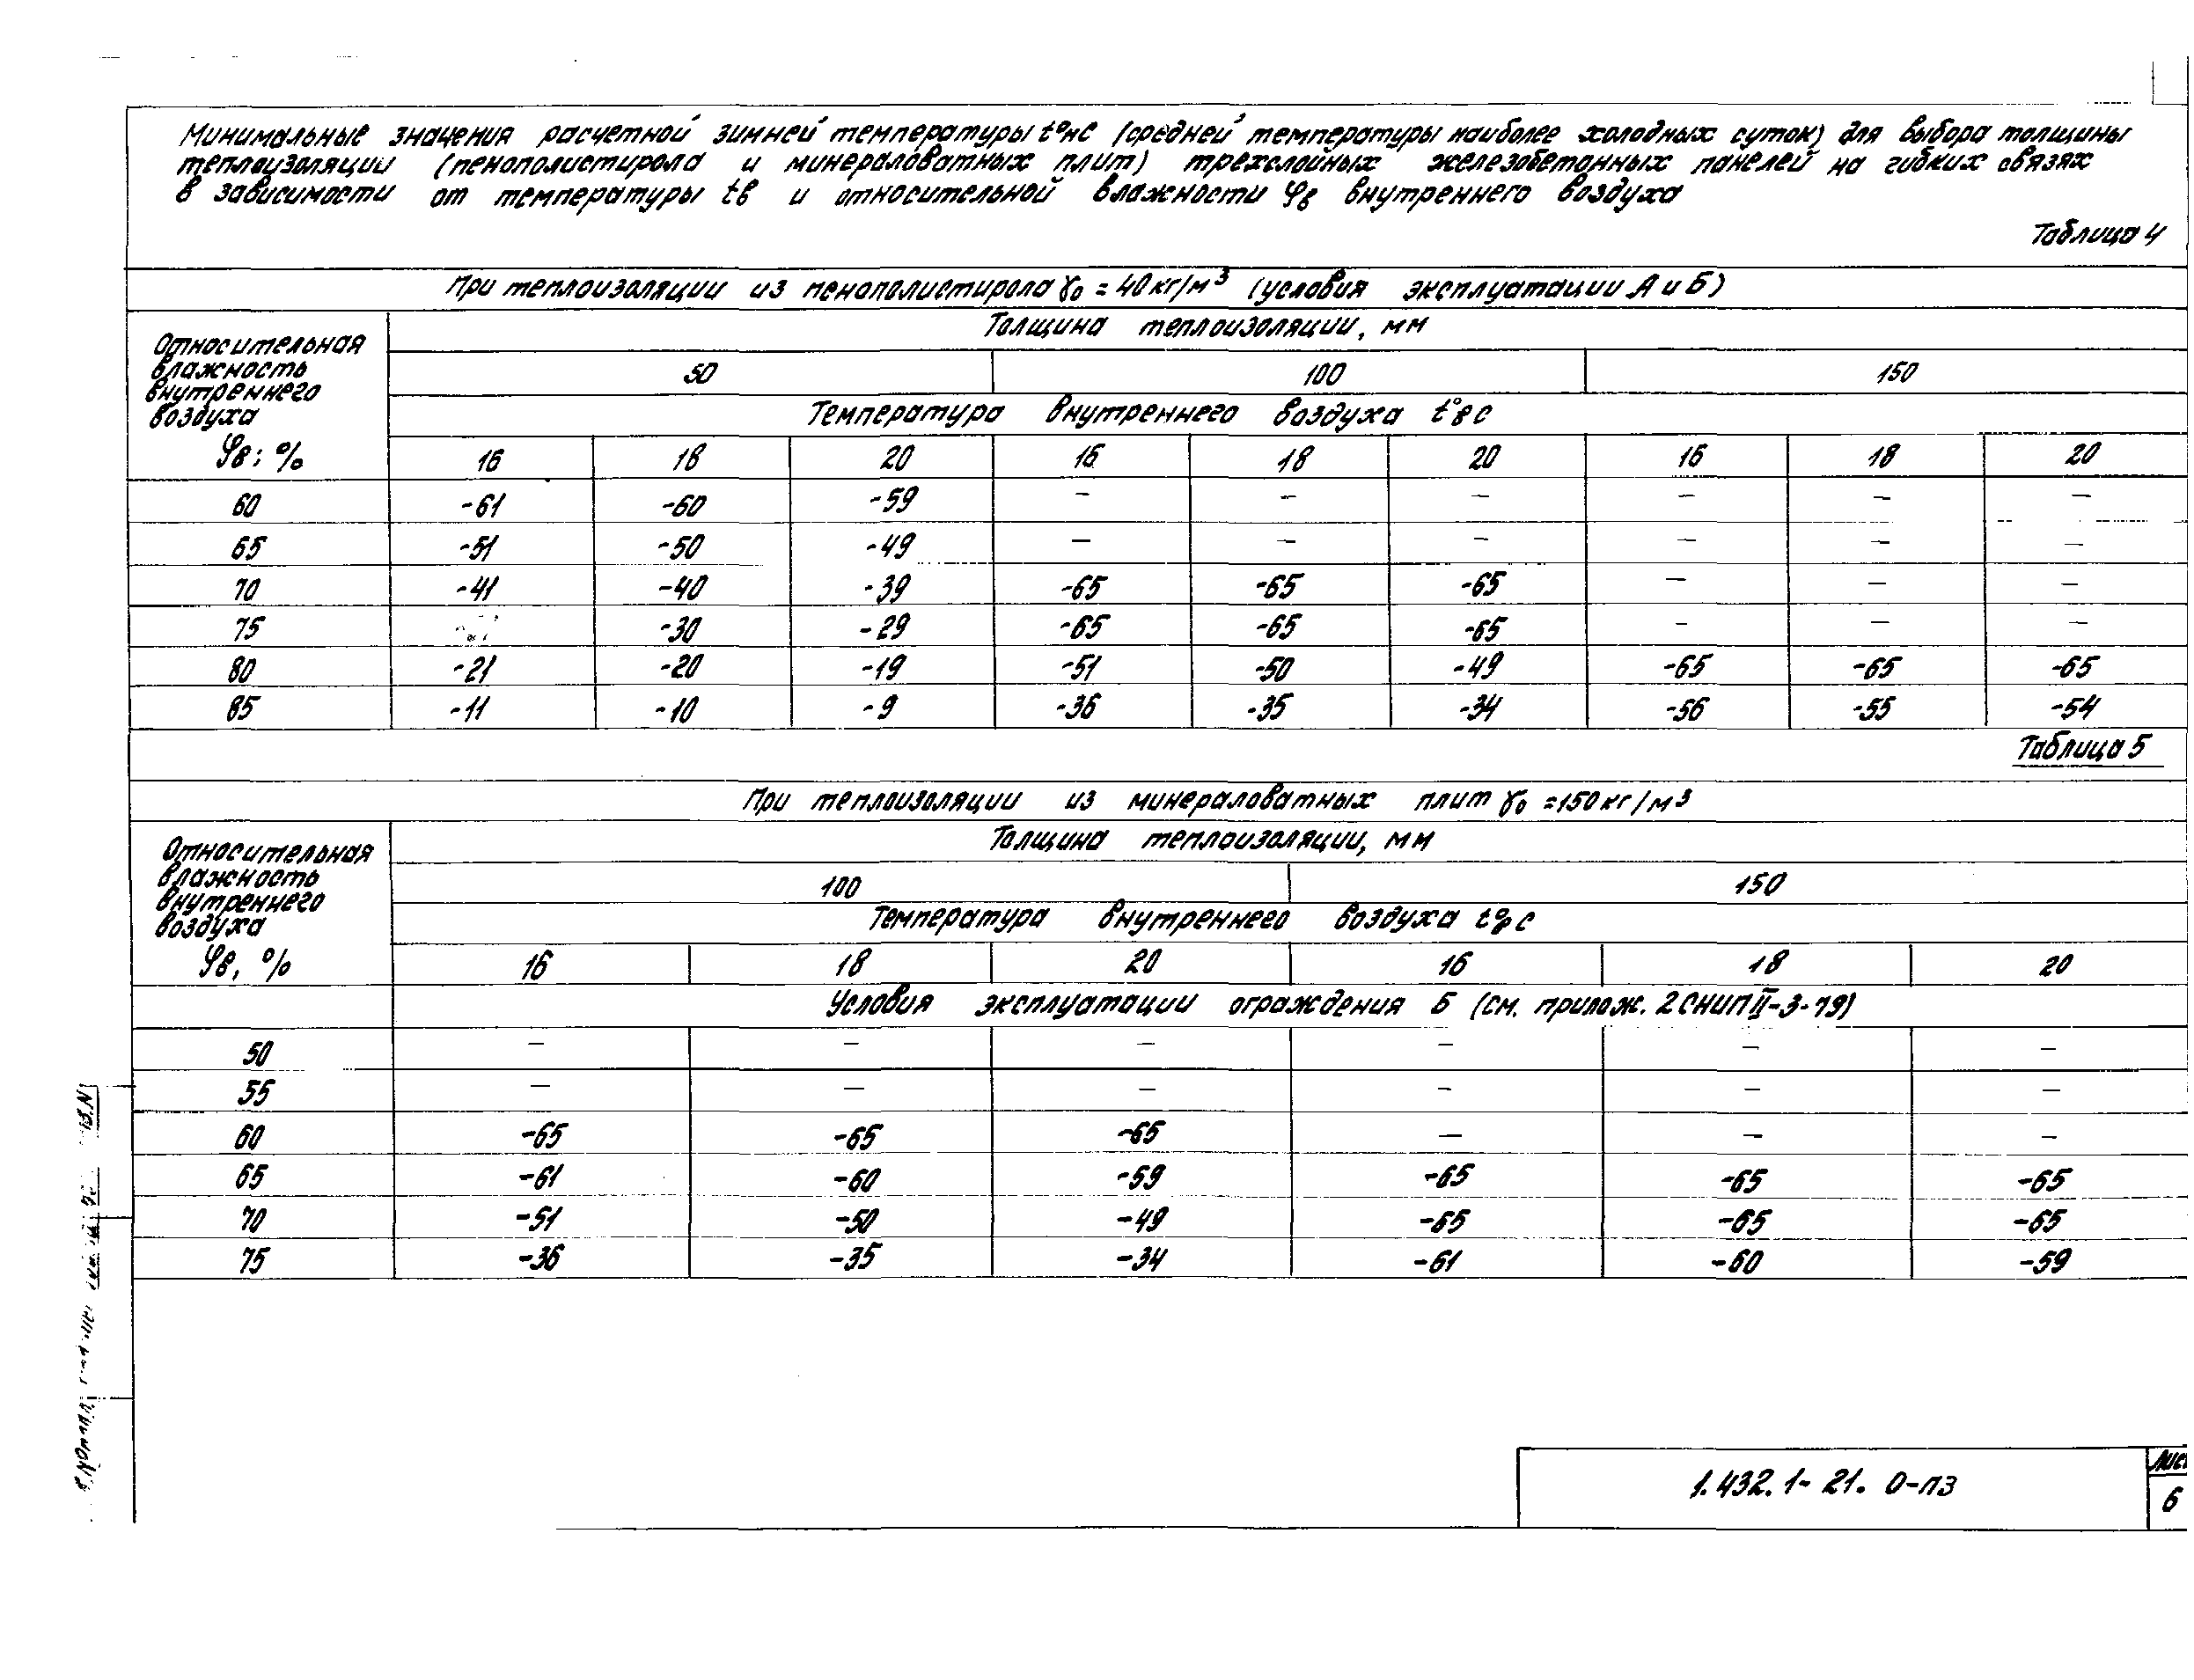 Минимальные значения расчетной зимней температуры t°нс (средней температуры наиболее холодных суток) для выбора толщины
теплоизоляции (пенополистирола и минераловатных плит) трехслойных железобетонных панелей на гибких связях
в зависимости от температуры tв и относительной влажности φв внутреннего воздуха
Таблица 4
При теплоизоляции из пенополистирола γ₀ = 40 кг/м³ (условия эксплуатации А и Б)
Относительная
влажность
внутреннего
воздуха
φв; %
Толщина теплоизоляции, мм
50 100 150
Температура внутреннего воздуха t°в с
16 18 20 16 18 20 16 18 20
60 -61 -60 -59 – – – – – –
65 -51 -50 -49 – – – – – –
70 -41 -40 -39 -65 -65 -65 – – –
75 -30 -29 -65 -65 -65 – – –
80 -21 -20 -19 -51 -50 -49 -65 -65 -65
85 -11 -10 -9 -36 -35 -34 -56 -55 -54
Таблица 5
При теплоизоляции из минераловатных плит γ₀ =150 кг/м³
Относительная
влажность
внутреннего
воздуха
φв, %
Толщина теплоизоляции, мм
100 150
Температура внутреннего воздуха t°в с
16 18 20 16 18 20
Условия эксплуатации ограждения Б (см. прилож. 2 СНиП II-3-79)
50 – – – – – –
55 – – – – – –
60 -65 -65 -65 – – –
65 -61 -60 -59 -65 -65 -65
70 -51 -50 -49 -65 -65 -65
75 -36 -35 -34 -61 -60 -59
1.432.1-21. 0-ПЗ
6